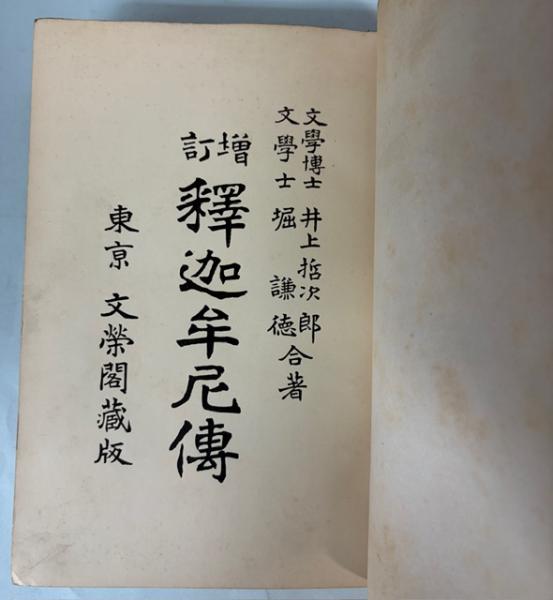 文學博士 井上哲次郎
文學士 堀 謙德 合著
增訂 釋迦牟尼傳
東亰 文榮閣藏版